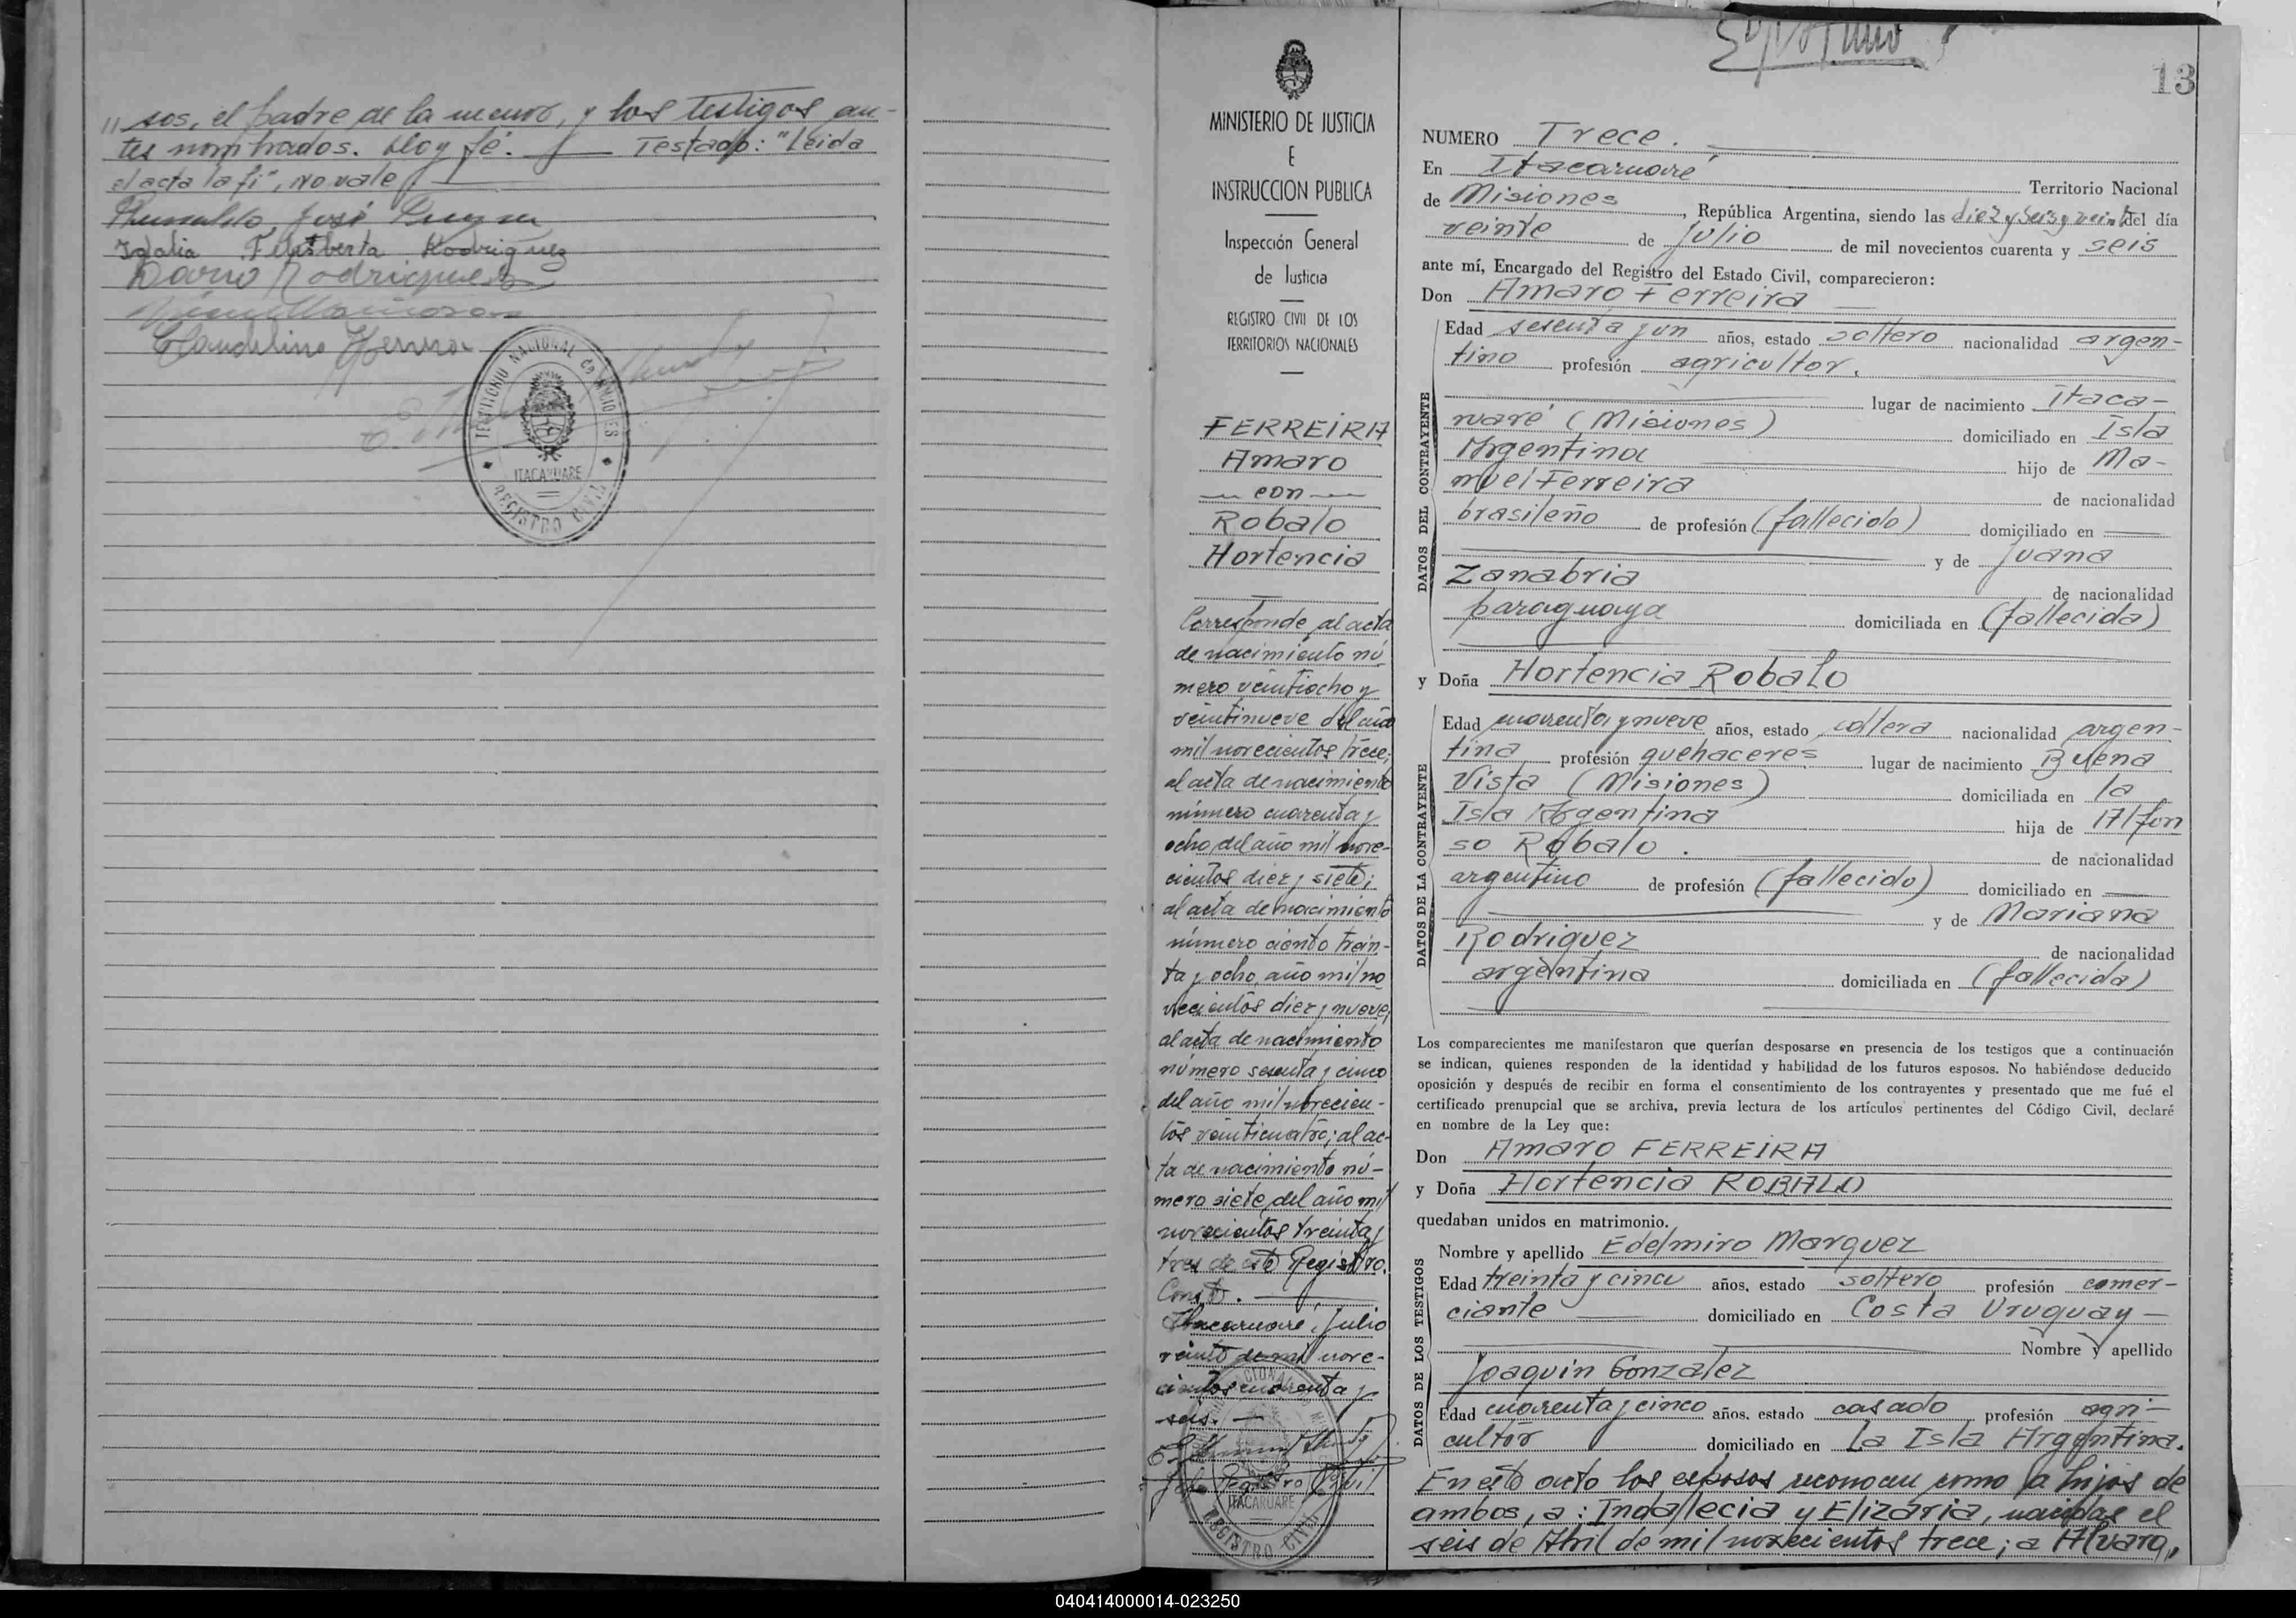 " sos, el padre de la menor, y los testigos an-
tes nombrados. Doy fé. Testado: "Leida
el acta la fi", no vale
José
Idalia Felisberta Rodriguez
Dario Rodriguez
Claudelino
TERRITORIO NACIONAL DE MISIONES
ITACARUARE
REGISTRO CIVIL
MINISTERIO DE JUSTICIA
E
INSTRUCCION PUBLICA
Inspección General
de Justicia
REGISTRO CIVIL DE LOS
TERRITORIOS NACIONALES
FERREIRA
Amaro
con
Robalo
Hortencia
Corresponde al acta
de nacimiento nú
mero veintiocho y
veintinueve del año
mil novecientos trece;
al acta de nacimiento
número cuarenta y
ocho del año mil nove-
cientos diez y siete;
al acta de nacimiento
número ciento trein-
ta y ocho, año mil no
vecientos diez y nueve,
al acta de nacimiento
número sesenta y cinco
del año mil novecien-
tos veinticuatro; al ac-
ta de nacimiento nú-
mero siete, del año mil
novecientos treinta y
tres de este Registro.
Const.
Itacaruaré, Julio
veinte de mil nove-
cientos cuarenta y
seis. -
Jefe Registro Civil
ITACARUARE
REGISTRO CIVIL
13
NUMERO Trece.
En Itacaruaré Territorio Nacional
de Misiones, República Argentina, siendo las diez y seis y veinte del día
veinte de Julio de mil novecientos cuarenta y seis
ante mí, Encargado del Registro del Estado Civil, comparecieron:
Don Amaro Ferreira
DATOS DEL CONTRAYENTE
Edad sesenta y un años, estado soltero nacionalidad argen-
tino profesión agricultor.
lugar de nacimiento Itaca-
ruaré (Misiones) domiciliado en Isla
Argentina hijo de Ma-
nuel Ferreira de nacionalidad
brasileño de profesión (fallecido) domiciliado en
y de Juana
Zanabria de nacionalidad
paraguaya domiciliada en (fallecida)
y Doña Hortencia Robalo
DATOS DE LA CONTRAYENTE
Edad cuarenta y nueve años, estado soltera nacionalidad argen-
tina profesión quehaceres lugar de nacimiento Buena
Vista (Misiones) domiciliada en la
Isla Argentina hija de Alfon
so Robalo. de nacionalidad
argentino de profesión (fallecido) domiciliado en
y de Mariana
Rodriguez de nacionalidad
argentina domiciliada en (fallecida)
Los comparecientes me manifestaron que querían desposarse en presencia de los testigos que a continuación
se indican, quienes responden de la identidad y habilidad de los futuros esposos. No habiéndose deducido
oposición y después de recibir en forma el consentimiento de los contrayentes y presentado que me fué el
certificado prenupcial que se archiva, previa lectura de los artículos pertinentes del Código Civil, declaré
en nombre de la Ley que:
Don Amaro FERREIRA
y Doña Hortencia ROBALO
quedaban unidos en matrimonio.
DATOS DE LOS TESTIGOS
Nombre y apellido Edelmiro Marquez
Edad treinta y cinco años, estado soltero profesión comer-
ciante domiciliado en Costa Uruguay
Nombre y apellido
Joaquin Gonzalez
Edad cuarenta y cinco años, estado casado profesión agri-
cultor domiciliado en La Isla Argentina.
En este acto los esposos reconocen como a hijos de
ambos, a: Indallecia y Elizaria, nacidas el
seis de Abril de mil novecientos trece; a Alvaro,,
040414000014-023250